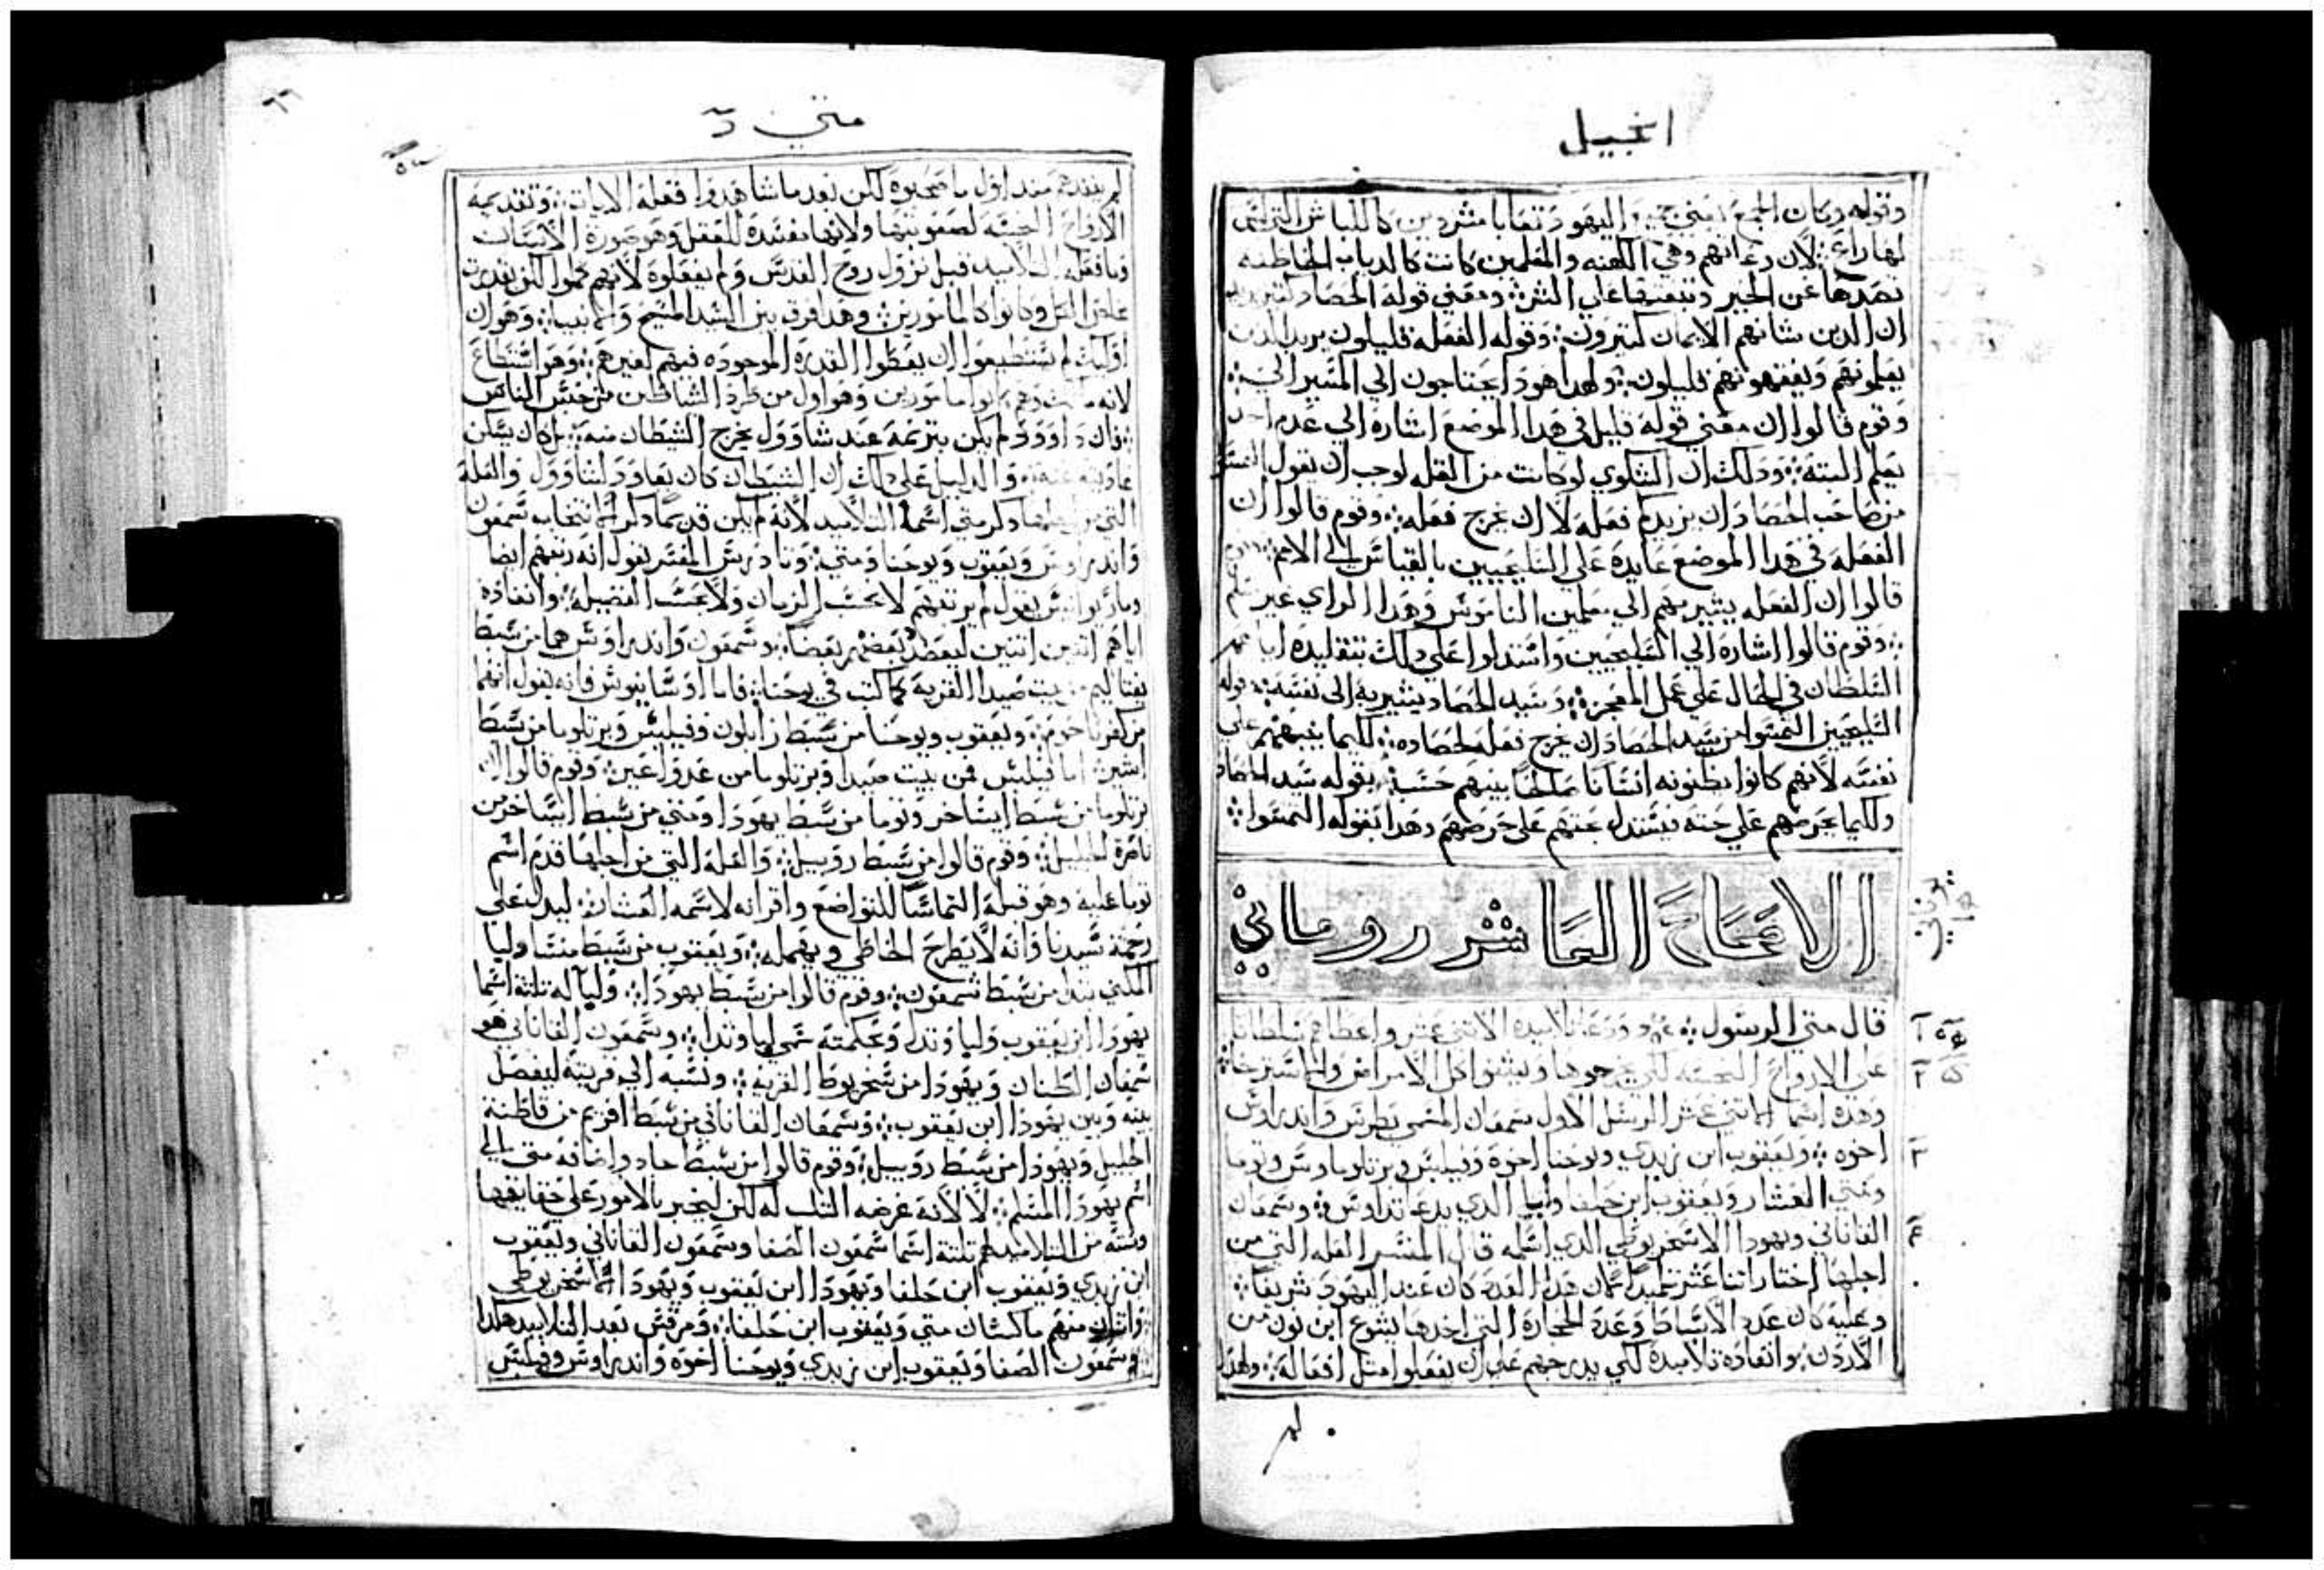 انجيل
لها راعي لان رعاتهم وهي الكهنه والمعلمين كانت كالدياب الخاطفه
تصدها عن الخير وتبعثها على الشر ومعني قوله الحصاد كثير
ان الدين شانهم الايمان كثيرون وقوله الفعله قليلون يريد الدين
يعلمونهم ويفقهونهم قليلون ولهدا هودا يحتاجون الي المشير الي
وقوم قالوا ان معني قوله قليل في هدا الموضع اشاره الي عدم احد
يعلم البته ودلك ان الشكوي لو كانت من القله لوجب ان يقول التمسوا
من صاحب الحصاد ان يزيدكم فعله لا ان يخرج فعله وقوم قالوا ان
الفعله في هدا الموضع عايده علي السليحيين بالقياس الي الامم
قالوا ان الفعله يشير بهم الي معلمين الناموس وهدا الراي غير
وقوم قالوا اشاره الي السليحيين واستدلوا علي دلك بتقليده اياهم
السلطان في الحال علي عمل المعجز وسيد الحصاد يشير به الي نفسه
السليحيين التمسوا من سيد الحصاد ان يخرج فعله لحصاده لكيما ينبههم علي
نفسه لانهم كانوا يظنونه انسانا صالحا بينهم حسب بقوله سيد الحصاد
ولكيما يحرضهم علي حثه يستدل بحثهم علي حرصهم وهدا بقوله التمسوا
الاصحاح العاشر روماني
قال متي الرسول ودعا تلاميده الاثني عشر واعطاهم سلطانا
علي الارواح النجسه لكي يخرجوها ويشفوا كل الامراض والاسترخا
وهده اسما الاثني عشر الرسل الاول سمعان المسمي بطرس واندراوس
اخوه ويعقوب ابن زبدي ويوحنا اخوه وفيلبس وبرتلوماوس وتوما
ومتي العشار ويعقوب ابن حلفا ولبا الدي يدعا تداوس وسمعان
القاناني ويهودا الاسخريوطي الدي اسلمه قال المفسر العله التي من
اجلها اختار اثنا عشر تلميدا لمكان هدا العدد كان عند اليهود شريفا
وعليه كان عدد الاسباط وعدد الحجاره التي اخدها يشوع ابن نون من
الاردن وانفاده تلاميده لكي يدرجهم علي ان يفعلوا مثل افعاله ولهدا
لم
متي
٦٦
لم ينفدهم مند اول ما صحبوه لكن بعد ما شاهدوا فعله الايات وتقديمه
الارواح النجسه لصعوبتها ولانها مفسده للعقل وهو صوره الانسان
وما فعله التلاميد قبل نزول روح القدس ولم يفعلوه لانهم
وكانوا كالمامورين وهدا فرق بين السيد المسيح والانبيا وهو ان
اوليك لم يستطيعوا ان يعطوا القدره الموجوده فيهم لغيرهم وهو استطاع
مامورين وهو اول من طرد الشياطين من جنس الناس
فان داوود لم يكن بترنمه عند شاوول يخرج الشيطان منه بل كان يسكن
والدليل علي دلك ان الشيطان كان يعاود لشاوول والعله
التي من اجلها دكر متي اسما التلاميد لانه لم يكن قدم دكر انتخاب شمعون
واندراوس ويعقوب ويوحنا ومتي المفسر يقول انه رتبهم ايضا
يقول لم يرتبهم لا بحسب الزمان ولا بحسب الفضيله وانفاده
اياهم اثنين اثنين ليعضد بعضهم بعضا وشمعون واندراوس هما من سبط
نفتاليم من بيت صيدا القريه كما كتب في يوحنا فاما اوسابيوس فانه يقول انهما
من كفرناحوم ويعقوب ويوحنا من سبط زابلون وفيلبس وبرتلوما من سبط
اشير اما فيلبس فمن بيت صيدا وبرتلوما من وقوم قالوا ان
برتلوما من سبط ايساخر وتوما من سبط يهودا ومتي من سبط ايساخر من
ناصرة الجليل وقوم قالوا من سبط روبيل والعله التي من اجلها قدم اسم
توما عليه وهو قبله التماسا للتواضع واقرانه لاسمه العشار ليدل علي
رحمة سيدنا وانه لا يطرح الخاطي ويهمله ويعقوب من سبط منشا ولبا
المكني تدا من سبط شمعون وقوم قالوا من سبط يهودا ولبا له تلتة اسما
يهودا ابن يعقوب ولبا وتدا ولحكمته سمي لبا وتدا وشمعون القاناني هو
شمعان الطنان ويهودا من سخريوط القريه ونسبه الي قريته ليفصل
بينه وبين يهودا ابن يعقوب وشمعان القاناني من سبط افريم من قاطنة
الجليل ويهودا من سبط روبيل وقوم قالوا من سبط جاد واضافة متي الي
اسم يهودا المسلم لا لانه غرضه التلب له لكن ليخبر بالامور علي حقايقها
وسته من التلاميد لهم تلتة اسما شمعون الصفا وشمعون القاناني ويعقوب
ابن زبدي ويعقوب ابن حلفا ويهودا ابن يعقوب ويهودا الاسخريوطي
واتنان منهم ماكسان متي ويعقوب ابن حلفا ومرقس يعد التلاميد هكدا
شمعون الصفا ويعقوب ابن زبدي ويوحنا اخوه واندراوس وفيلبس